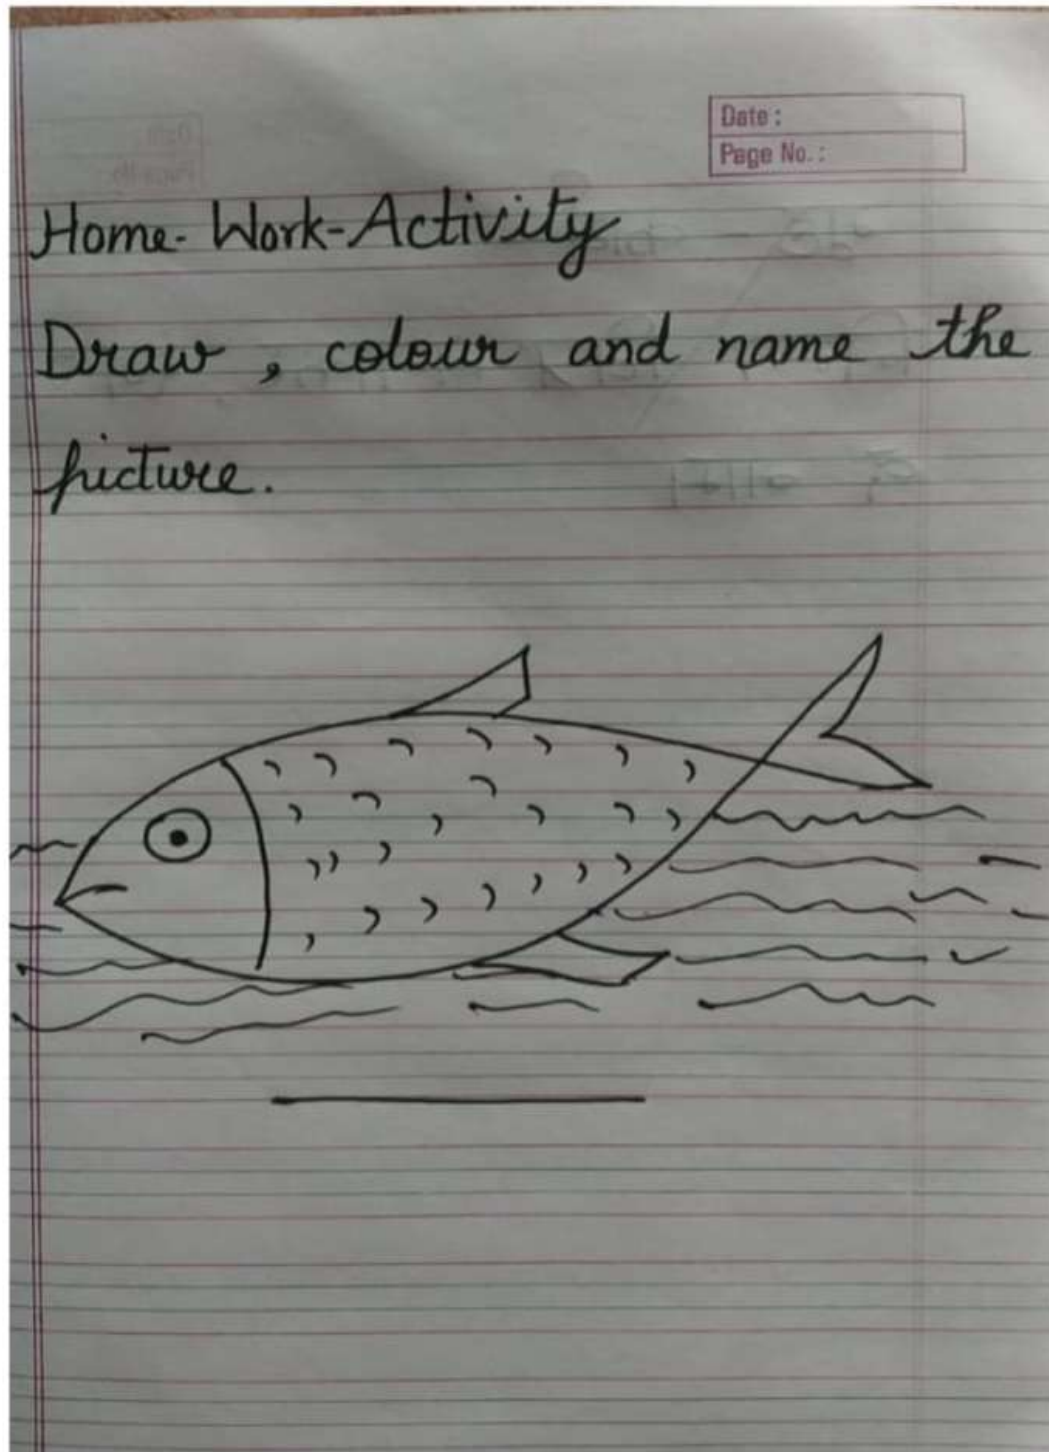 Date :
Page No. :
Home-Work-Activity
Draw, colour and name the
picture.